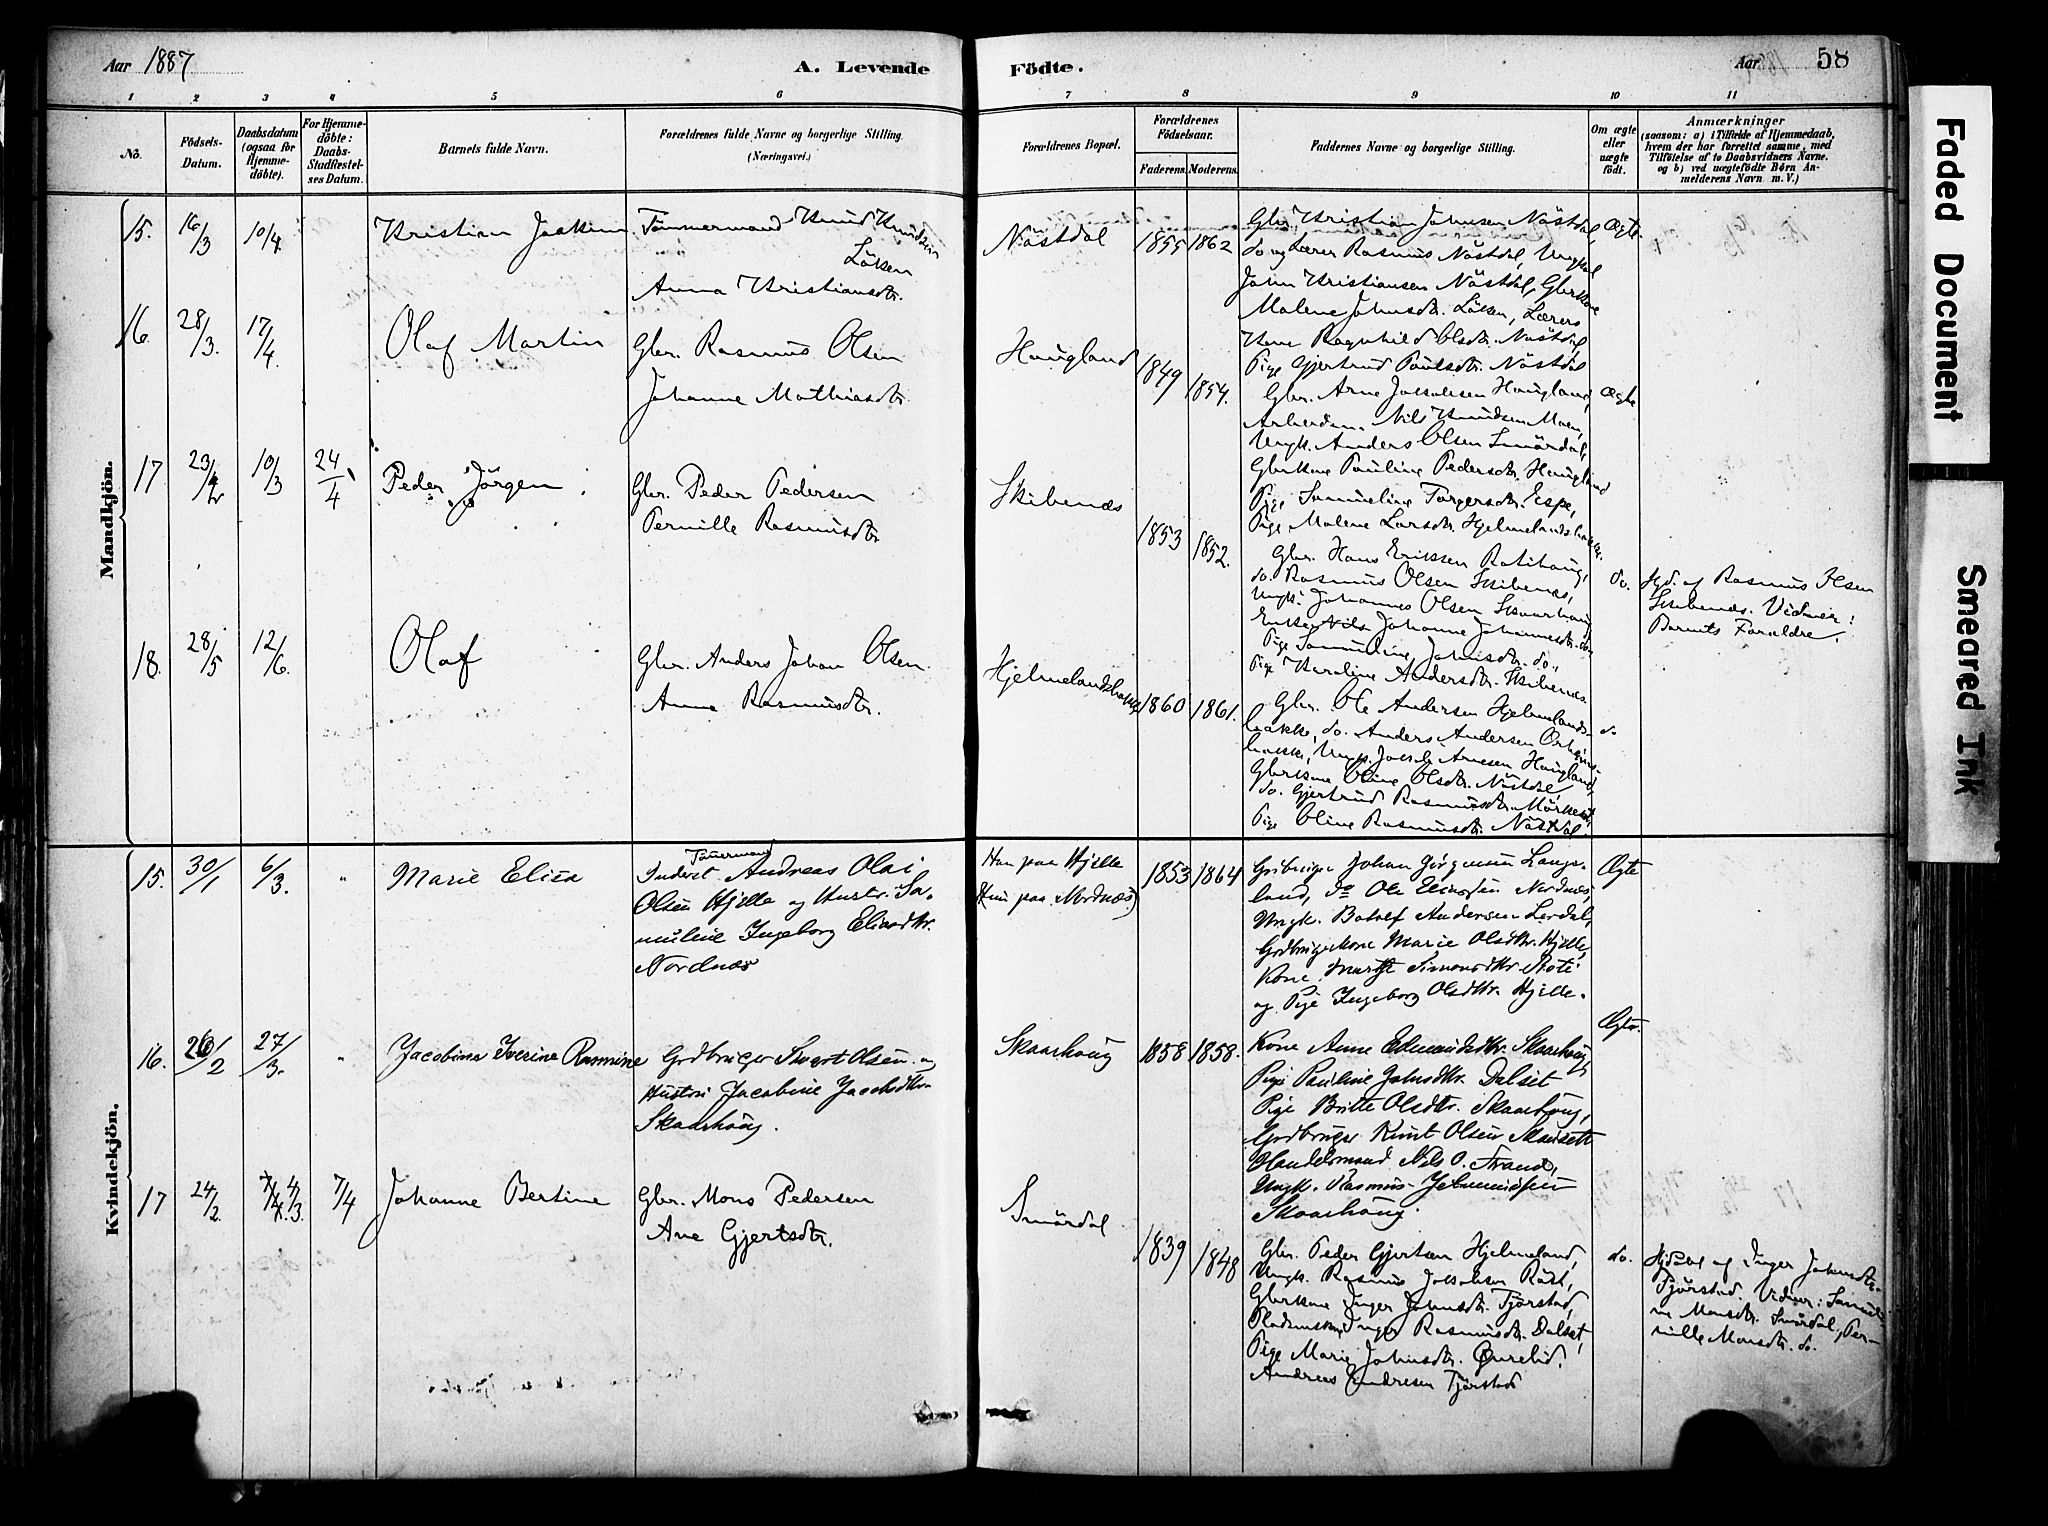 Aar 1887
A. Levende
Födte.
Aar
58
1 2 3 4 5 6 7 8 9 10 11
No.
Födsels-
Datum.
Daabsdatum
(ogsaa for
Hjemme-
döbte).
For Hjemme-
döbte:
Daabs-
Stadfæstel-
ses Datum.
Barnets fulde Navn.
Forældrenes fulde Navne og borgerlige Stilling.
(Næringsvei.)
Forældrenes Bopæl.
Forældrenes
Födselsaar.
Faderens. Moderens.
Faddernes Navne og borgerlige Stilling.
Om ægte
eller
uægte
födt.
Anmærkninger
(saasom: a) i Tilfælde af Hjemmedaab,
hvem der har forrettet samme, med
Tilföielse af to Daabsvidners Navne.
og b) ved uægtefödte Börn An-
melderens Navn m. V.)
Mandkjön.
15. 16/3 10/4 Kristian Joakim
Tömmermand Knud Knudsen
Löken
Anna Kristiansdtr.
Nästdal 1855 1862
Gbr. Kristian Johnsen Nästdal,
do og Lærer Rasmus Nästdal, Ungkal
John Kristiansen Nästdal, Gbrkone
Malene Johnsdtr. Löken, Lærers
Kone Ragnhild Olsdtr. Nästdal
Pige Gjertrud Paulsdtr. Nästdal
Ægte
16. 28/3. 17/4. Olaf Martin
Gbr. Rasmus Olsen
Johanne Mathiasdtr.
Haugland 1849 1854.
Gbr. Arne Jakobsen Haugland,
Arbeidsm. Nils Knudsen Moen,
Ungk. Anders Olsen Smördal,
Gbrkone Pauline Pedersdtr. Haugland
Pige Samueline Torgersdtr. Espe,
Pige Malene Larsdtr. Hjelmelandsbakke.
Ægte
17 10/3 24/4 Peder Jörgen
Gbr. Peder Pedersen
Pernille Rasmusdtr.
Skibenæs 1853 1852.
Gbr. Hans Eriksen Rotihaug,
do. Rasmus Olsen Skibenæs,
Ungk. Johannes Olsen Skaarhaug
Johanne Johannesdtr.
Pige Samueline Johnsdtr. do.,
Pige Karoline Andersdtr. Skibenæs.
do.
Hjd. af Rasmus Olsen
Skibenæs. Vidner:
Barnets Forældre.
18. 28/5 12/6. Olaf
Gbr. Anders Johan Olsen.
Anna Rasmusdtr.
Hjelmelandsbakke 1860 1861.
Gbr. Ole Andersen Hjelmelands-
bakke, do. Anders Andersen
bakke, Ungk. Jakob Arnesen Haugland,
Gbrkone Oline Olsdtr. Nästdal,
do. Gjertrud Rasmusdtr.
Pige Oline Rasmusdtr. Nästdal.
do
Kvindekjön.
15. 30/1 6/3. " Marie Elisa
Tömermand
Inderst. Andreas Olai
Olsen Hjelle og Hustr. Sa-
muline Ingeborg Eliasdtr.
Nordnæs
Han paa Hjelle
(Hun paa Nordnæs)
1853 1864
Grdbruger Johan Jörgensen Langs-
land, do Ole Eliassen Nordnæs,
Ungk. Botolf Andersen Lerdal,
Grdbrugerkone Marie Olsdtr. Hjelle,
Kone Marthe Simonsdtr Rote
og Pige Ingeborg Olsdtr. Hjelle.
Ægte
16. 26/2 27/3. " Jacobine Iverine Rasmine
Grdbruger Sivert Olsen og
Hustru Jacobine Jacobsdtr.
Skaarhoug.
Skaarhoug 1858 1858.
Kone Anne Edmundsdtr. Skaarhoug,
Pige Pauline Johnsdtr. Dalset
Pige Britte Olsdtr. Skaarhoug,
Grdbruger Knut Olsen
Handelsmand Nils O. Strand,
Ungk. Rasmus
Skaarhoug.
Ægte.
17 24/2. 4/3. 7/4 Johanne Bertine
Gbr. Mons Pedersen
Ane Gjertsdtr.
Smördal 1839 1848
Gbr. Peder Gjertsen Hjelmeland,
Ungk. Rasmus Jakobsen Röst,
Gbrkone Inger Johnsdtr. Tjörstad,
Pladsmskone Inger Rasmusdtr. Dalset,
Pige Marie Johnsdtr. Ourelid,
Andreas Andresen Tjörstad
do.
Hjdøbt af Inger Johnsdtr.
Tjörstad. Vidner: Samueli-
ne Monsdtr. Smördal, Per-
nille Monsdtr. do.
Faded Document
Smeared Ink